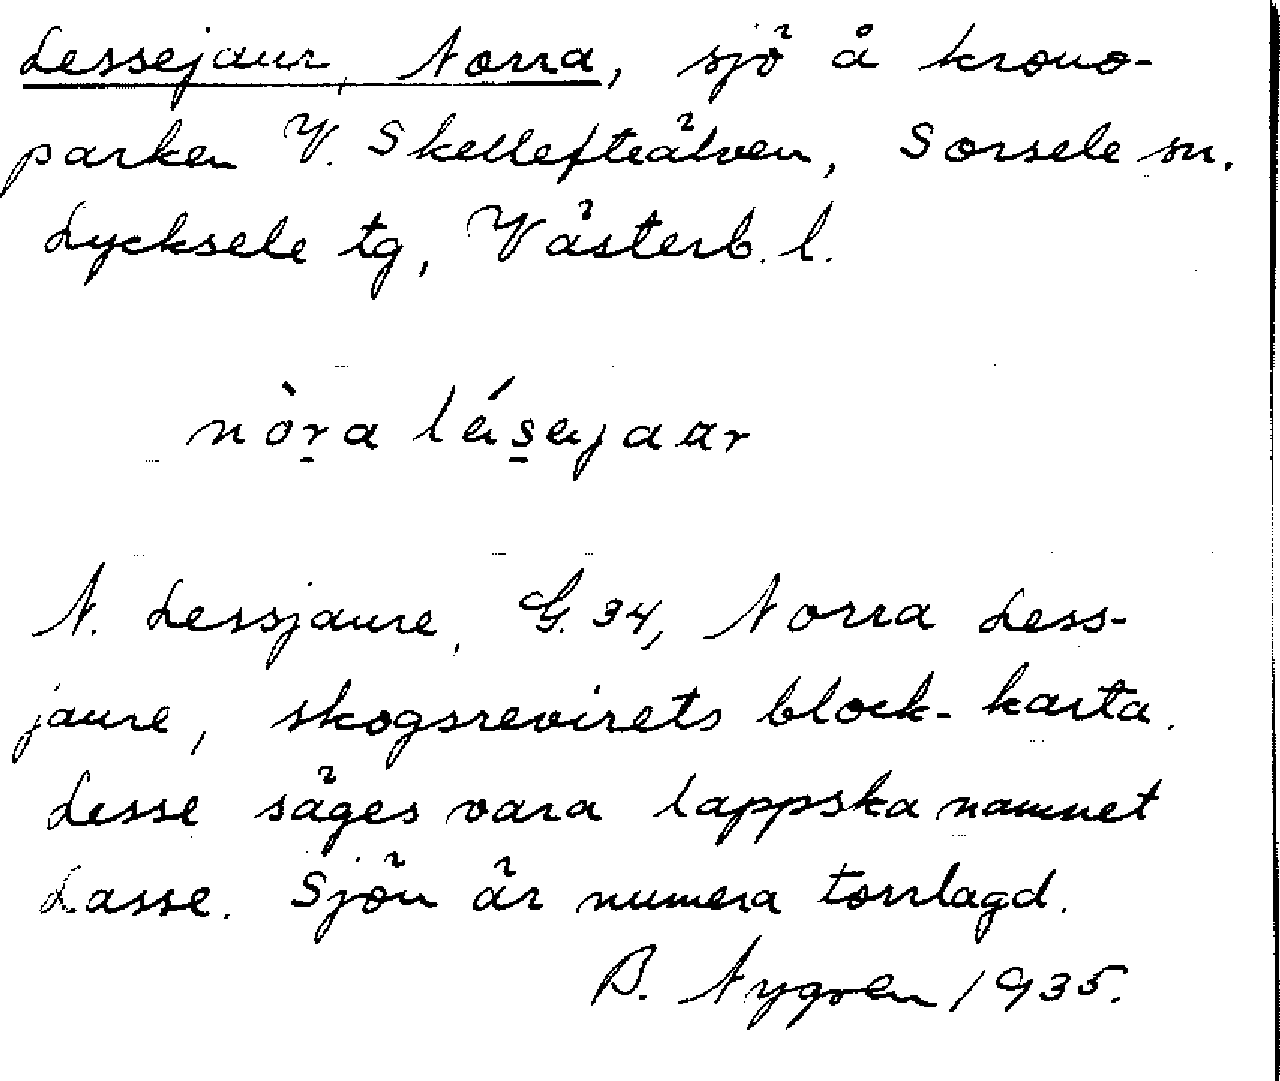 Lessejaur, Norra, sjö å krono-
parken V. Skellefteälven, Sorsele sn.
Lycksele tg, Västerb. l.
nòr̲a lés̲ejaar
N. Lessjaure, G. 34, Norra Less-
jaure, skogsrevirets block-karta.
Lesse säges vara lappska namnet
Lasse. Sjön är numera torrlagd.
B. Nygren 1935.